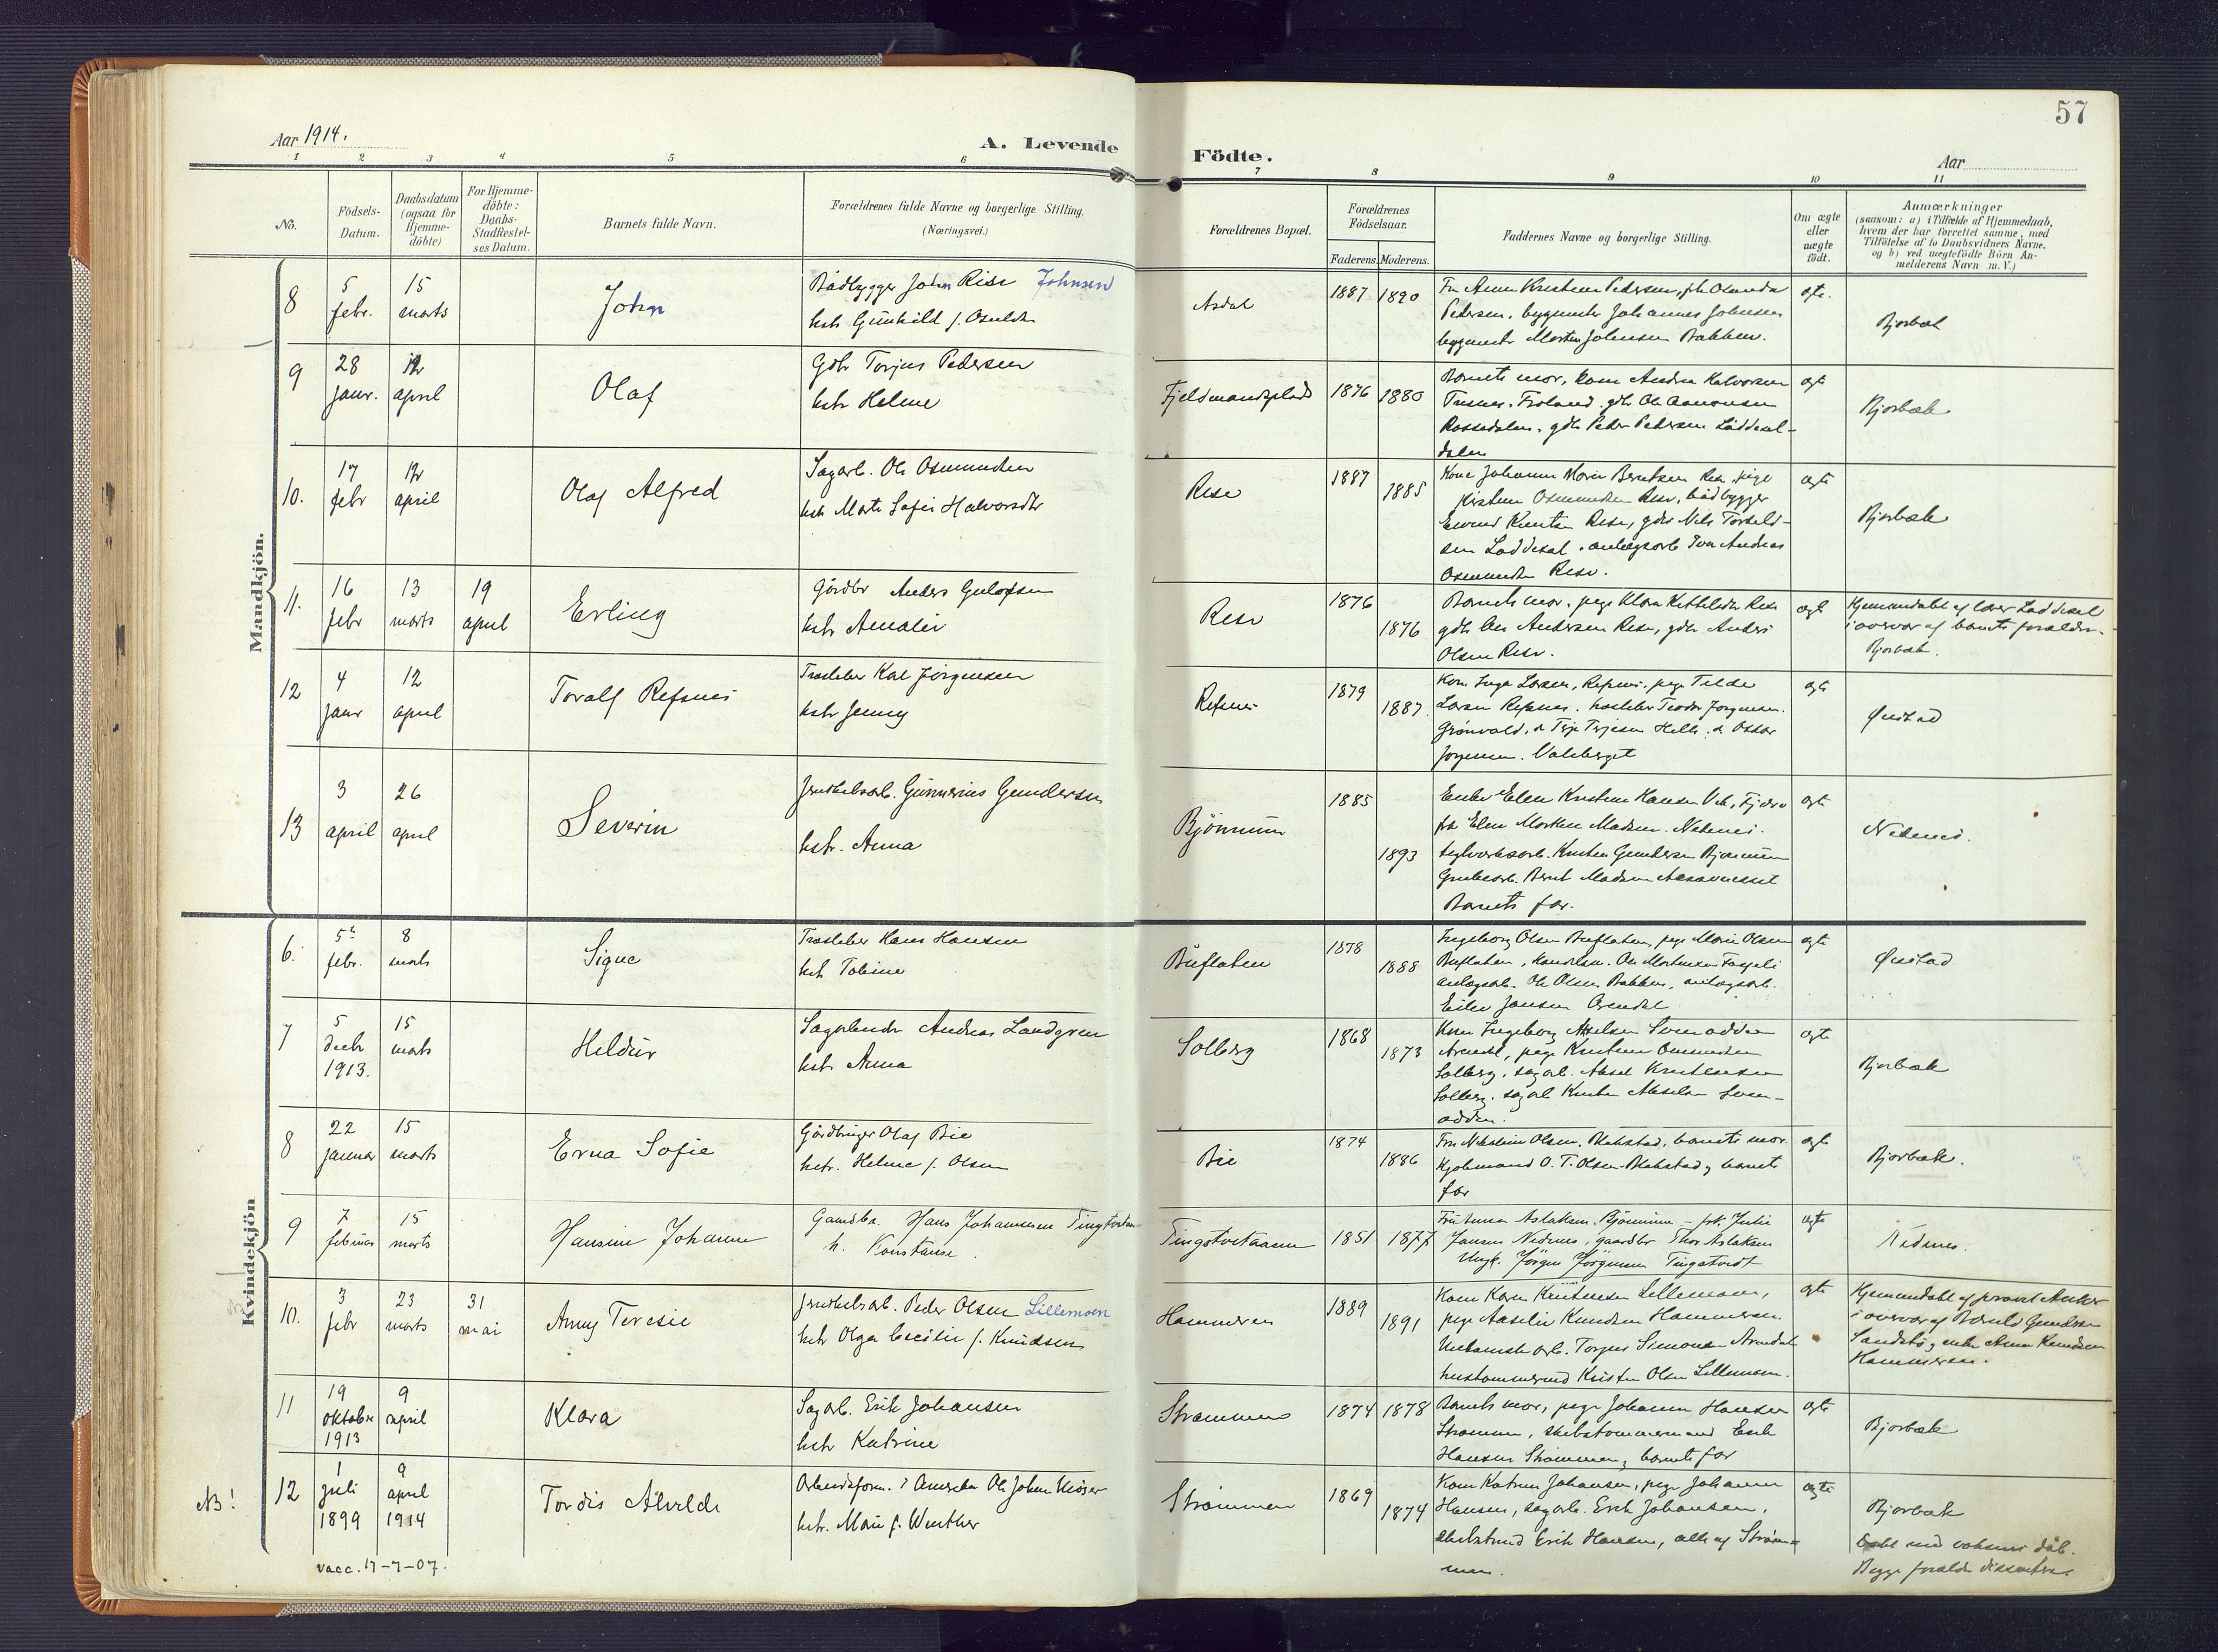 57
Aar 1914.
A. Levende
Födte.
Aar
1 2 3 4 5 6 7 8 9 10 11
No.
Födsels-Datum.
Daabsdatum (ogsaa for Hjemme-döbte)
For Hjemme-döbte: Daabs-Stadfestel-ses Datum.
Barnets fulde Navn.
Forældrenes fulde Navne og borgerlige Stilling.
(Næringsvei.)
Forældrenes Bopæl.
Forældrenes Födselsaar.
Faderens. Moderens.
Faddernes Navne og borgerlige Stilling.
Om ægte eller uægte födt.
Anmærkninger
(saasom: a) i Tilfælde af Hjemmedaab,
hvem der har forrettet samme, med
Tilföielse af to Daabsvidners Navne,
og b) ved uægtefödte Börn An-
melderens Navn m. V.)
Mandkjön.
8
5 febr.
15 marts
John
Bådbygger John Rise Johnsen
hstr Gunhild f. Osulds
Asdal
1887 1890
Pedersen, bygmester Johannes Johnsen
bygmest Morten Johnsen Bakken.
egte.
Bjorbæk
9
28 janr.
12 april
Olaf
Gdbr Torjus Pedersen
hstr Helene
Fjeldmandsplads
1876 1880
Barnets mor, kone Andrea Halvorsen
Froland. gdb Ole Aanonsen
Rossedalen, gdb Peder Pedersen Løddesøl-
dalen
egte
Bjorbæk
10.
17 febr
12 april
Olaf Alfred
Sagarb. Ole Osmundsen
hstr Marte Sofie Halvorsdtr
Rise
1887 1885
Kone Johanne Marie Berntsen Rise, pige
Kirstine Osmundsen Rise, bådbygger
Eivind Knutsen Rise, gdbr Nils Torkeld-
sen Løddesøl, anlægsarb
Osmundsen Rise.
egte
Bjorbæk
11.
16 febr
13 marts
19 april
Erling
Gårdbr Anders Gulofsen
hstr Amalie
Rise
1876 1876
Barnets mor, pige Klara Kittelsdtr Rise
gdb Ole Andersen Rise, gdb Anders
Olsen Rise.
egte
Hjemmedøbt af lærer Løddesøl
i overvær af barnets forældre.
Bjorbæk.
12
4 janr
12 april
Toralf Refsnes
Træsleber Karl Jörgensen
hstr Jenny
Refsnes
1879 1887
Kone Inga Larsen, Refsnes, pige Tilda
Larsen Refsnes, træsleber Teodor Jörgensen
Grönvold, Terje Terjesen Helle, Oskar
Jörgensen. Valeberget
egte
Øiestad
13
3 april
26 april
Severin
Jernskibsarb. Gunnerius Gundersen
hstr. Anna
Bjönnum
1885 1893
Enke Elen Kirstine Hansen
frk Elen Martine Madsen. Nedenes.
teglverksarb. Kristen Gundersen Bjønnum
Grubearb. Bernt Madsen
Barnets far.
egte
Nedenes.
Kvindekjön
6.
5te febr.
8 marts
Signe
Træsleber Hans Hansen
hstr Tobine
Buflaten
1878 1888
Ingeborg Olsen Buflaten, pige Marie Olsen
Buflaten, Ole Mortensen
anlægsarb. Ole Olsen Bakken, anlægsarb.
Eilev Jansen Arendal
egte
Øiestad
7
5 decbr 1913.
15 marts
Heldur
Sagarbeider Andreas Landgren
hstr Anna
Solberg
1868 1873
Kone Ingeborg Akselsen Svenodden
Arendal, pige Kristine Osmundsen
Solberg, sagarb. Aksel Kristensen
Solberg, sagarb Kristen Akselsen Sven-
odden.
egte
Bjorbæk
8
22 januar
15 marts
Erna Sofie
Gårdbruger Olaf Bie
hstr. Helene f. Olsen
Bie
1874 1886
Fru Nikoline Olsen, Blakstad, barnets mor
Kjøbmand O. T. Olsen Blakstad, barnets
far
egte
Bjorbæk.
9
7 februar
15 marts
Hansine Johanne
Gaardbr. Hans Johannesen Tingtveitaasen
h. Konstanse.
Tingstveitaasen
1851 1877
Aslaksen, Bjönnum - frk. Julie
Jansen Nedenes, gaardbr Thor Aslaksen
Ungk. Jörgen Jörgensen Tingstveit
egte
Nedenes.
10.
3 febr
23 marts
31 mai
Anny Teresie
Jernskibsarb. Peder Olsen Lillemoen
hstr Olga Cecilie f. Knudsen
Hammeren
1889 1891
Kone Karen Kristensen Lillemoen,
pige Aaselie Knudsen Hammeren.
arb. Torjus Simonsen Arendal
hustømmermand Kristen Olsen Lillemoen.
egte
Hjemmedøbt af provst Anker
i overvær af Gundersen
enke Anna Knudsen
Hammeren.
11
19 oktober 1913
9 april
Klara
Sagarb. Erik Johansen
hstr Katrine
Strømmen
1874 1878
Barnets mor, pige Johanne Hansen
Strømmen, skibstømmermand Erik
Hansen Strømmen, barnets far
egte
Bjorbæk
NB!
12
1 juli 1899
9 april 1914
Tordis Alvilde
Arbeidsform. i Amerika Ole Johan
hstr. Marie f. Winther
Strømmen
1869 1874
Kone Katrine Johansen, pige Johanne
Hansen, sagarb. Erik Johansen,
Erik Hansen, alle af Strøm-
men.
egte
Bjorbæk
Døbt med voksnes dåb.
Begge forældre dissentere
vacc. 17-7-07.